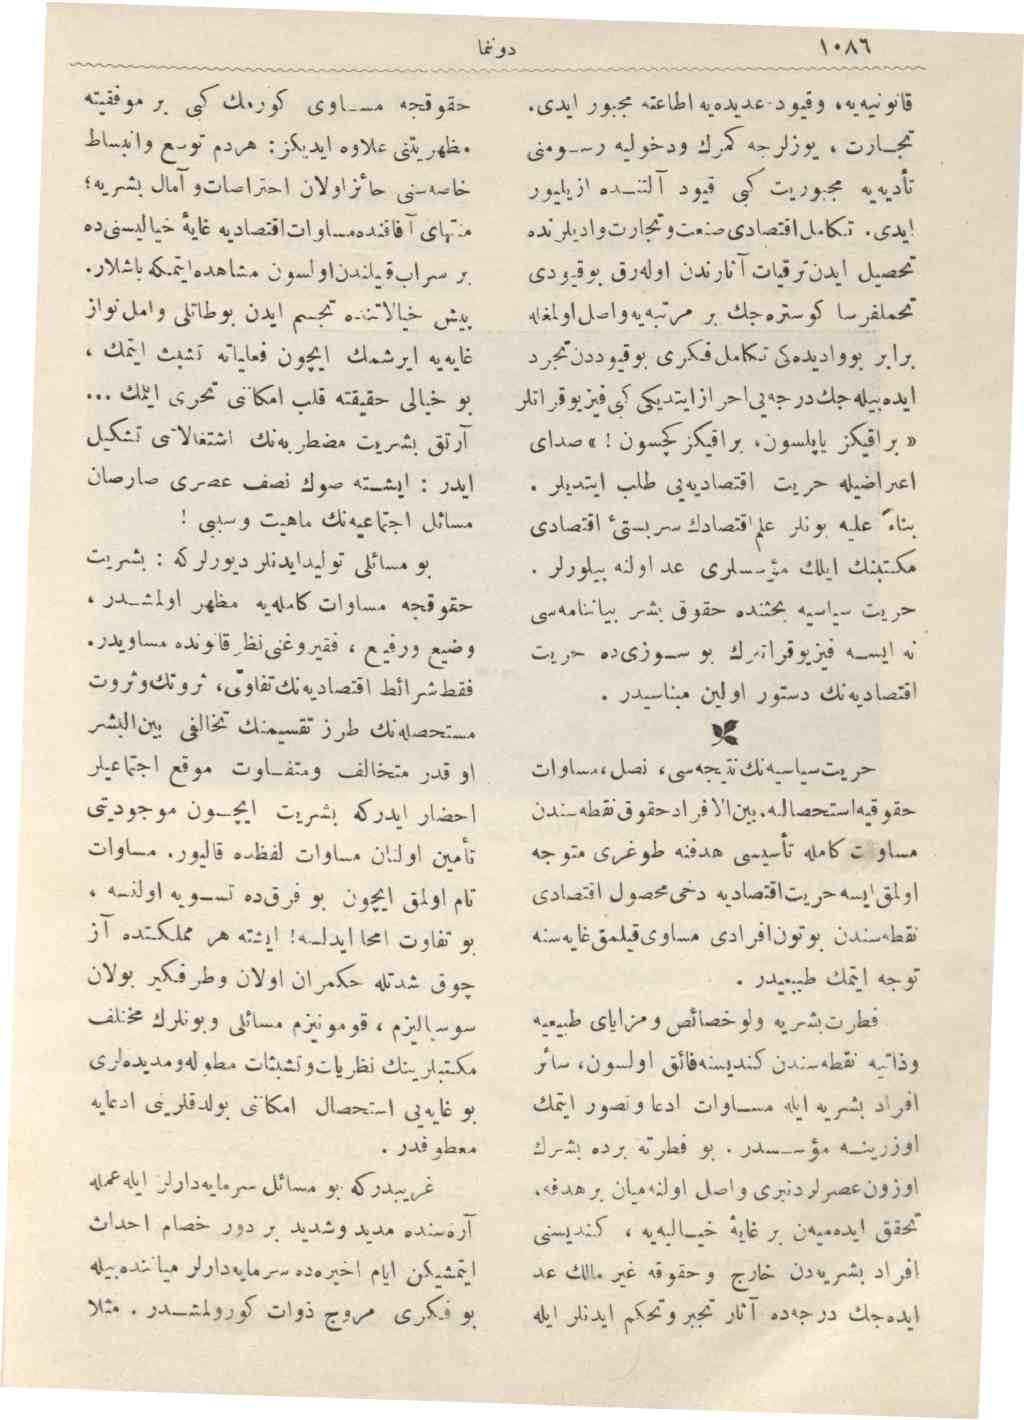 ١٠٨٦
دوننما
قانونيه‌يه، وقيود عديده‌يه اطاعته مجبور ايدى.
تجـارت، يوزلرجه كمرك ودخوليه رسـومنى
تأديه‌يه مجبوريت كبى قيود آلتنـده ازيليور
ايدى. تكامل اقتصادى صنعت وتجارت واديلرنده
تحصيل ايدن ترقيات آثارندن اوله‌رق بوقيودى
تحملفرسا كوستره‌جك بر مرتبه‌يه واصل اولمغله
برابر بوواديده‌كى تكامل فكرى بوقيوددن تجرد
ايده‌بيله‌جك درجه‌يى احراز ايتديكى كبى فيزيوقراتلر
« براقيكز ياپلسون، براقيكز كچسون ! » صداى
اعتراضيله حريت اقتصاديه‌يى طلب ايتديلر .
بناءً عليه بونلر علم اقتصادك سربستئ اقتصادى
مكتبنك ايلك مؤسسلرى عد اولنه بيلورلر .
حريت سياسيه بحثنده حقوق بشر بياننامه‌سى
نه ايسـه فيزيوقراتلرك بو سـوزى‌ده حريت
اقتصاديه‌نك دستور اولين مبناسيدر .
حريت سياسيه‌نك نتيجه‌سى، نصل، مساوات
حقوقيه استحصاله. بين‌الافراد حقوق نقطه‌سندن
مساوات كامله تأسيسى هدفنه طوغرى متوجه
اولمق ايسه حريت اقتصاديه دخى محصول اقتصادى
نقطه‌سندن بوتون افرادى مساوى قيلمق غايه‌سنه
توجه ايتمك طبيعيدر .
فطرت بشريه ولو خصائص ومزاياى طبيعيه
وذاتيه نقطه‌سندن كنديسنه فائق اولسون، سائر
افراد بشريه ايله مسـاوات ادعا وتصور ايتمك
اوزرينـه مؤسـسدر . بو فطرته برده بشرك
اوزون عصرلردنبرى واصل اولنه‌ميان بر هدفه،
تحقق ايده‌مين بر غايۀ خيـاليه‌يه ، كنديسنى
افراد بشريه‌دن خارج وحقوقه غير مالك عد
ايده‌جك درجه‌ده آثار تجبر وتحكم ايدنلر ايله
حقوقجه مسـاوى كورمك كبى بر موفقيته
مظهريتنى علاوه ايديكز : هردم توسع وانبساط
خاصه‌سنى حائز اولان احتراصات و آمال بشريه؛
منتهاى آفاقنده مساوات اقتصاديه غايۀ خياليسنى ده
بر سراب قبيلندن اولسون مشاهده ايتمكه باشلار.
پيش خيالاتنده تجسم ايدن بوطاتلى وامل نواز
غايه‌يه ايرشمك ايچون فعلياته تشبث ايتمك ،
بو خيالى حقيقته قلب امكاننى تحرى ايتمك ...
آرتق بشريت مضطربه‌نك اشتغالاتى تشكيل
ايدر : ايشـته صوك نصف عصرى صارصان
مسائل اجتماعيه‌نك ماهيت وسببى !
بو مسائلى توليد ايدنلر ديورلركه : بشريت
حقوقجه مساوات كامله‌يه مظهر اولمشـدر ،
وضيع ورفيع ، فقير وغنى نظر قانونده مساويدر.
فقط شرائط اقتصاديه‌نك تفاوتى، ثروتك وثروت
مستحصله‌نك طرز تقسيمنك تخالفى بين‌البشر
او قدر متخالف ومتفـاوت موقع اجتماعيلر
احضار ايدركه بشريت ايچـون موجوديتى
تأمين اولنان مساوات لفظده قاليور. مساوات
تام اولمق ايچون بو فرق‌ده تسـويه اولنسه ،
بو تفاوت امحا ايدلسه! ايشته هر مملكتده آز
چوق شدتله حكمران اولان وطرفكير بولان
سوسياليزم ، قومونيزم مسائلى وبونلرك مختلف
مكتبلرينك نظريات وتشبثات مطوله ومديده‌لرى
بو غايه‌يى استحصال امكاننى بولدقلرينى ادعايه
معطوفدر .
غريبدركه بو مسائل سرمايه‌دارلر ايله عمله
آره‌سنده مديد وشديد بر دور خصام احداث
ايتمشيكن ايام اخيره‌ده سرمايه‌دارلر مياننده‌بيله
بو فكرى مروج ذوات كورولمشـدر . مثلا